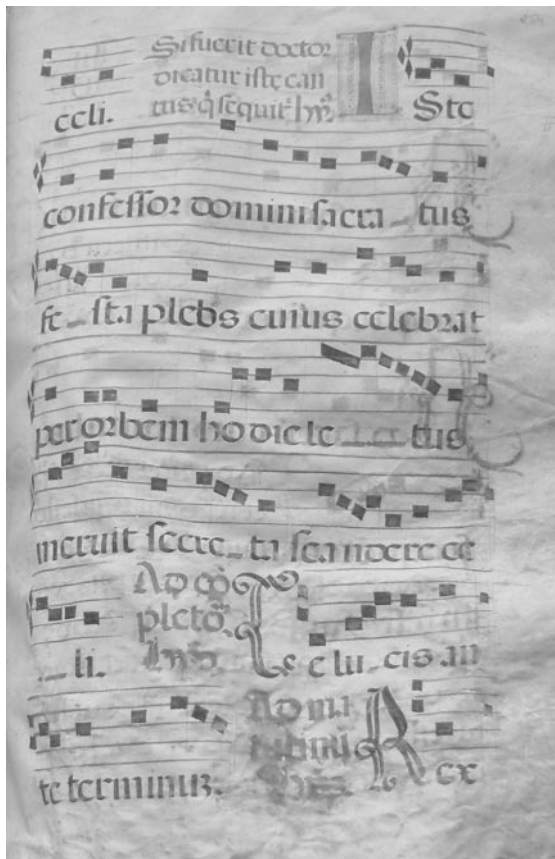 celi. Si fuerit doctor
dicatur iste can
tus q̃ sequit᷑ hỹ. ISte
confessor domini sacra_tus
fe_sta plebs cuius celebrat
per orbem hodie le_ _tus
meruit secre_ta scandere ce
_li. Ad cõ
pletoꝝ.
hỹ. Te e lu_cis an
te terminum. Ad ma
tutinũ
hỹ. Rex